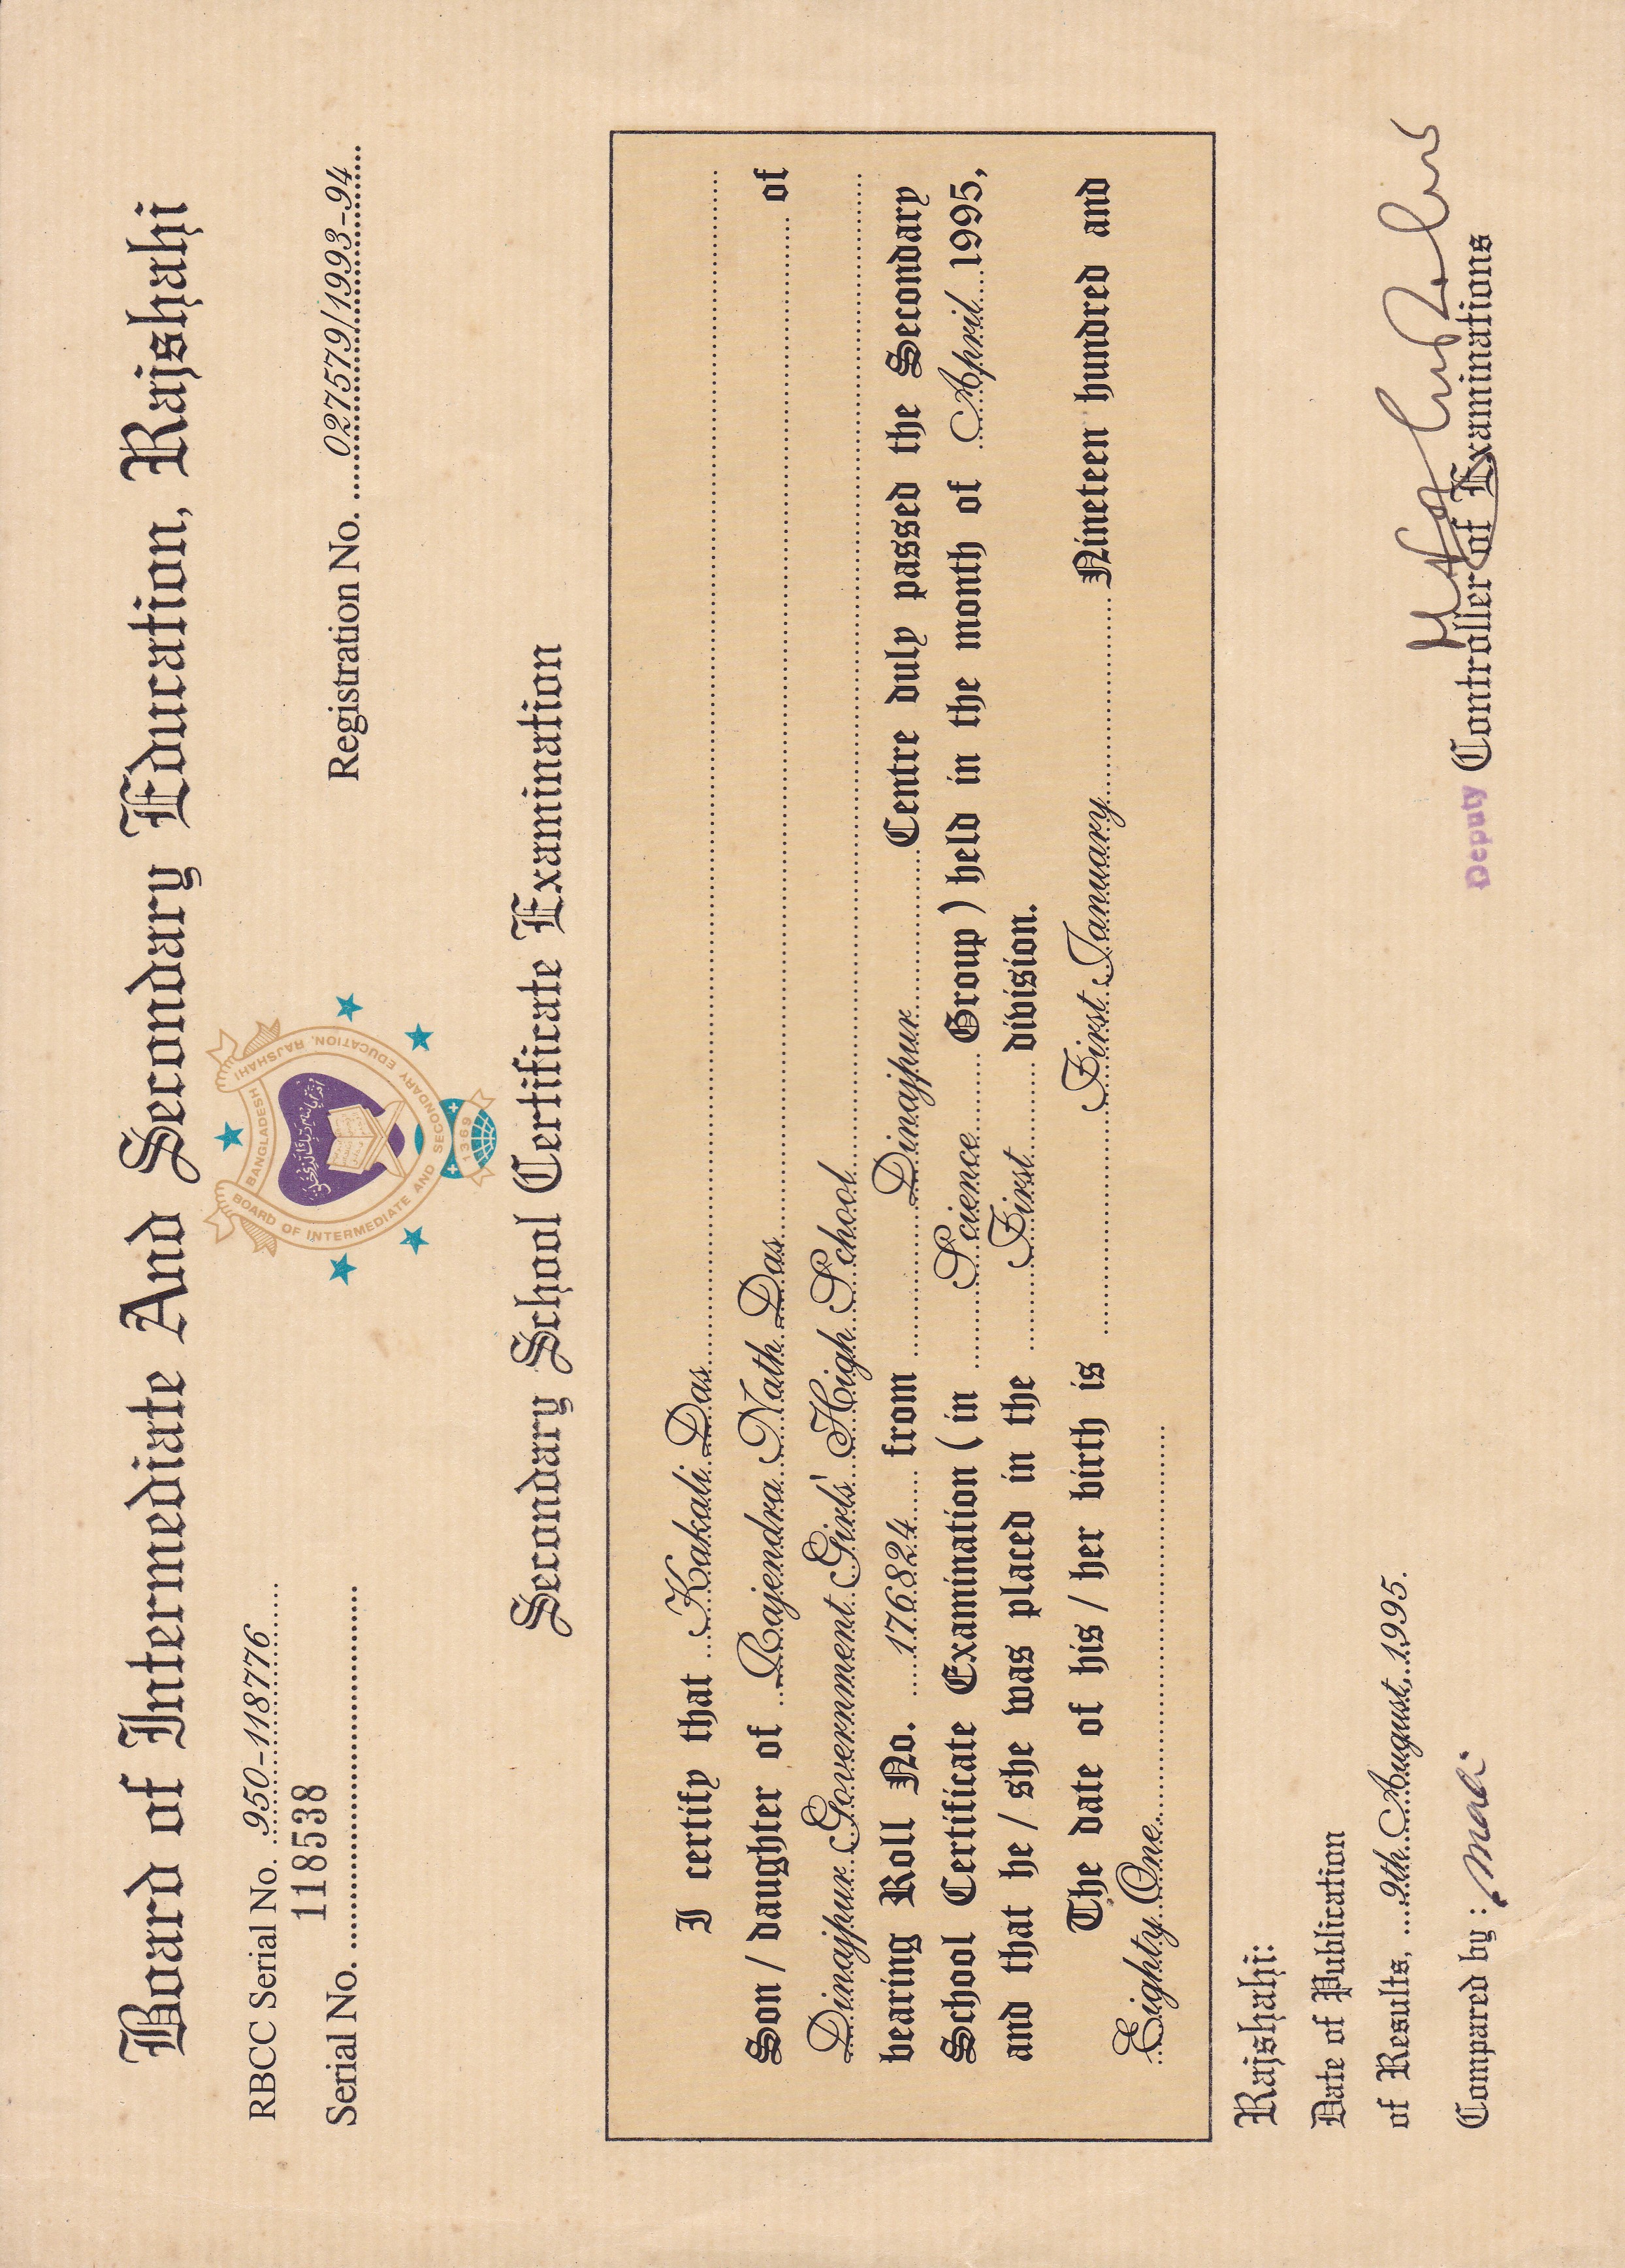 Board of Intermediate And Secondary Education, Rajshahi
RBCC Serial No. 950-118776
118538
Serial No.
Registration No. 027579/1993-94
BANGLADESH
BOARD OF INTERMEDIATE AND SECONDARY EDUCATION, RAJSHAHI
اقرأ باسم ربك الذي خلق
1369
Secondary School Certificate Examination
I certify that Kakali Das
Son / daughter of Rajendra Nath Das of
Dinajpur Government Girls' High School
bearing Roll No. 176824 from Dinajpur Centre duly passed the Secondary
School Certificate Examination ( in Science Group ) held in the month of April 1995,
and that he / she was placed in the First division.
The date of his / her birth is First January Nineteen hundred and
Eighty One.
Rajshahi:
Date of Publication
of Results, 9th August, 1995.
Compared by :
Deputy Controller of Examinations